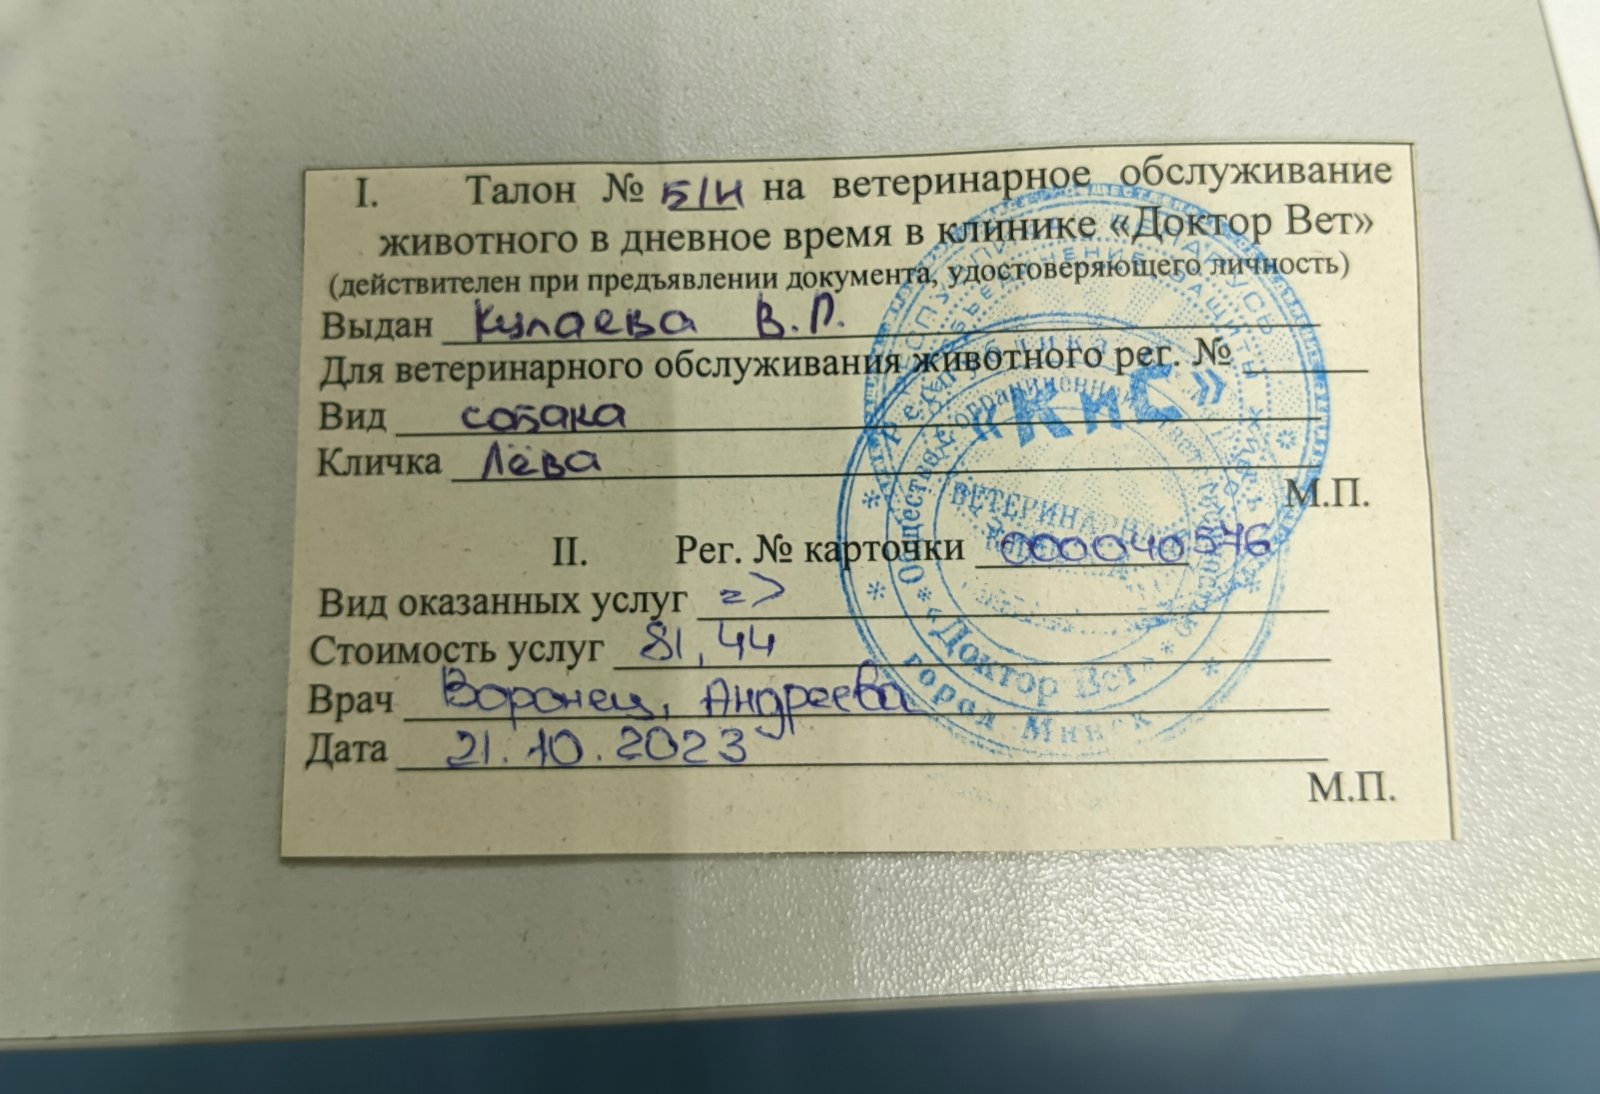 I. Талон № Б/Н на ветеринарное обслуживание
животного в дневное время в клинике «Доктор Вет»
(действителен при предъявлении документа, удостоверяющего личность)
Выдан Кулаева В.П.
Для ветеринарного обслуживания животного рег. №
Вид собака
Кличка Лёва
М.П.
II. Рег. № карточки 000040576
Вид оказанных услуг =>
Стоимость услуг 81,44
Врач Воронец, Андреева
Дата 21.10.2023
М.П.
«КиС»
ВЕТЕРИНАРНАЯ
«Доктор Вет»
город Минск